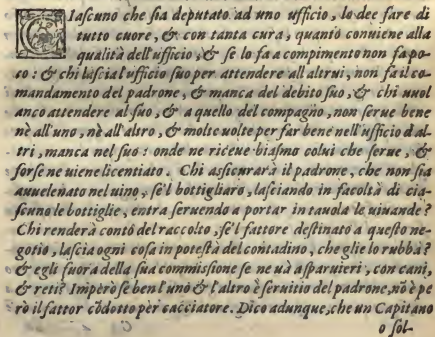 CIascuno che sia deputato ad uno ufficio, lo dee fare di
tutto cuore, & con tanta cura, quanto conuiene alla
qualità dell'ufficio, & se lo fa a compimento non fa po-
co: & chi lascia l'ufficio suo per attendere all'altrui, non fa il co-
mandamento del padrone, & manca del debito suo, & chi uuol
anco attendere al suo, & a quello del compagno, non serue bene
nè all'uno, nè all'altro, & molte uolte per far bene nell'ufficio d'al-
tri, manca nel suo: onde ne riceue biasmo colui che serue, &
forse ne uiene licentiato. Chi assicurarà il padrone, che non sia
auuelenato nel uino, se'l bottigliaro, lasciando in facoltà di cia-
scuno le bottiglie, entra seruendo a portar in tauola le uiuande?
Chi renderà conto del raccolto, se'l fattore destinato a questo ne-
gotio, lascia ogni cosa in potestà del contadino, che glie lo rubba?
& egli fuora della sua commissione se ne uà a sparuieri, con cani,
& reti? Imperò se ben l'uno & l'altro è seruitio del padrone, nõ è pe
rò il fattor cõdotto per cacciatore. Dico adunque, che un Capitano
o sol-